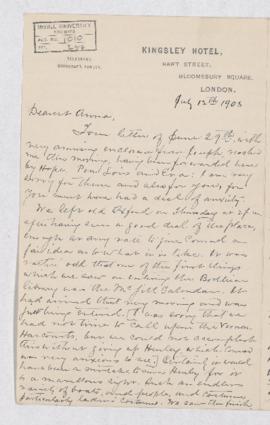 McGILL UNIVERSITY
ARCHIVES
ACC. NO. 1010
REF.
TELEGRAMS
KINGSLEY HOTEL,
HART STREET,
BLOOMSBURY SQUARE,
LONDON.
July 12th 1903
Dearest Anna,
Your letter of June 29th, with
very amusing enclosure from reached
me this morning, having been forwarded here
by Hope. Poor and Eva. I am very
sorry for them and also for you, for
you must have had a deal of anxiety.
We left old Oxford on Thursday at
after having seen a good deal of the place,
enough at any rate to give Conrad a
fair idea as to what it is like. It was
rather odd that one of the first things
which we saw on entering the Bodleian
library was the McGill Calendar. It
had arrived that very morning and was
just being entered. I was sorry that we
had not time to call upon the Vernon
Harcourts, but we could not accomplish
this without giving up Henley which Conrad
was very anxious to see. Certainly it would
have been a mistake to miss Henley for it
is a marvellous sight. Such an endless
variety of boats, and people, and costumes
particularly ladies' costumes. We saw the finish